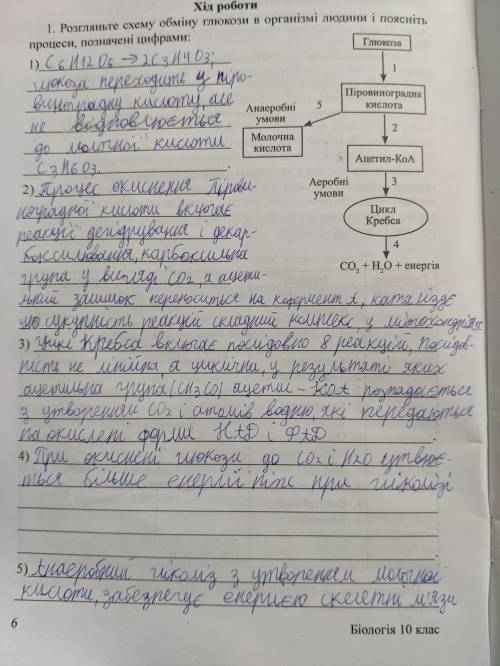 Хід роботи
1. Розгляньте схему обміну глюкози в організмі людини і поясніть
процеси, позначені цифрами:
Глюкоза
1
Піровиноградна
кислота
Анаеробні
умови
5
Молочна
кислота
2
Ацетил-КоА
Аеробні
умови
3
Цикл
Кребса
4
CO2 + H2O + енергія
1) C6H12O6 → 2C3H4O3;
глюкоза переходить у піро-
виноградну кислоту, але
не відновлюється
до молочної кислоти
C3H6O3.
2) Процес окиснення Пірови-
ноградної кислоти включає
реакції дегідрування і декар-
боксилювання, карбоксильна
група у вигляді CO2, а ацети-
льний залишок переноситься на кофермент А, каталізує
цю сукупність реакцій складний комплекс у мітохондріях
3) Цикл Кребса включає послідовно 8 реакцій, послідов-
ність не лінійна, а циклічна, у результаті яких
ацетильна група (CH3CO) ацетил-КоА розпадається
з утворенням CO2 і атомів водню, які передаються
на окислені форми НАД і ФАД
4) При окисненні глюкози до CO2 і H2O утворює-
ться більше енергії ніж при гліколізі
5) Анаеробний гліколіз з утворенням молочної
кислоти, забезпечує енергією скелетні м'язи
6
Біологія 10 клас